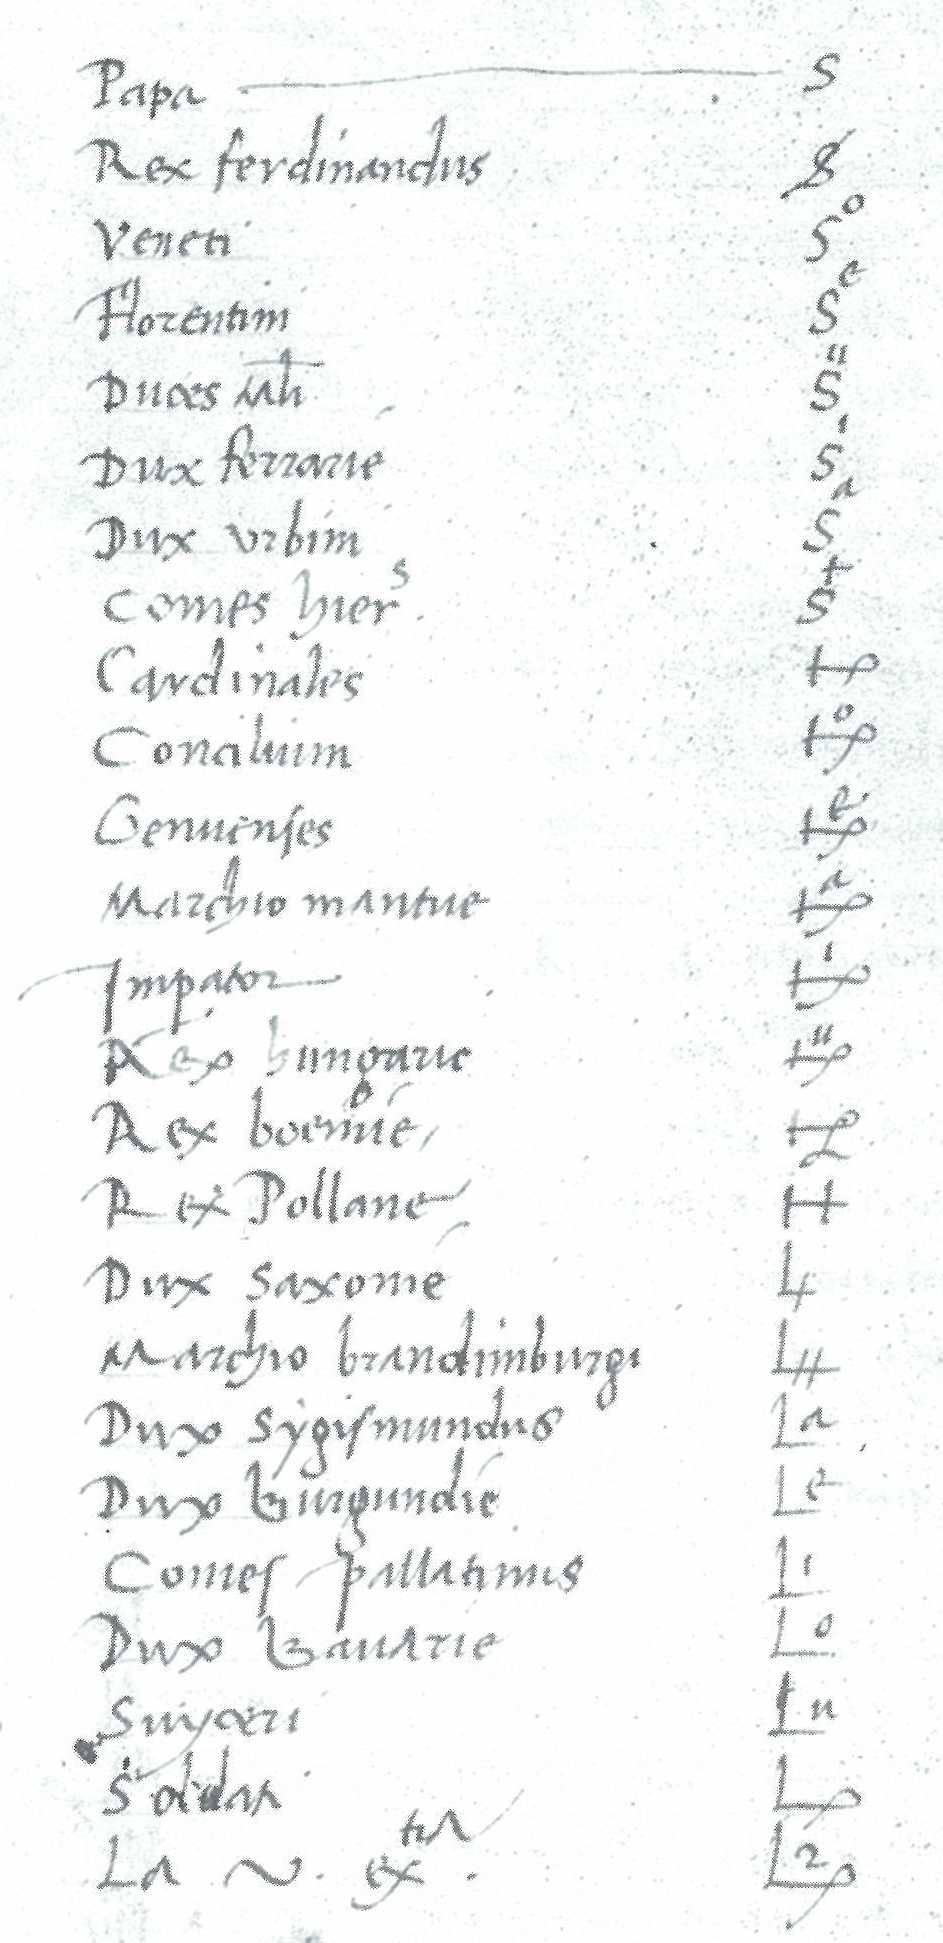 Papa S
Rex ferdinandus
Veneti S o
Florentini S e
Duces Mli S ii
Dux ferrarie S i
Dux urbini S a
Comes hier s S +
Cardinales
Concilium
Genuenses
Marchio mantue
Impator
Rex hungarie
Rex boemie
Rex Pollane H
Dux saxonie L
Marchio brandimburgi L
Dux sygismundus La
Dux burgundie Le
Comes pallatinus Li
Dux bavarie Lo
Suyceri Lu
Soldan L
La